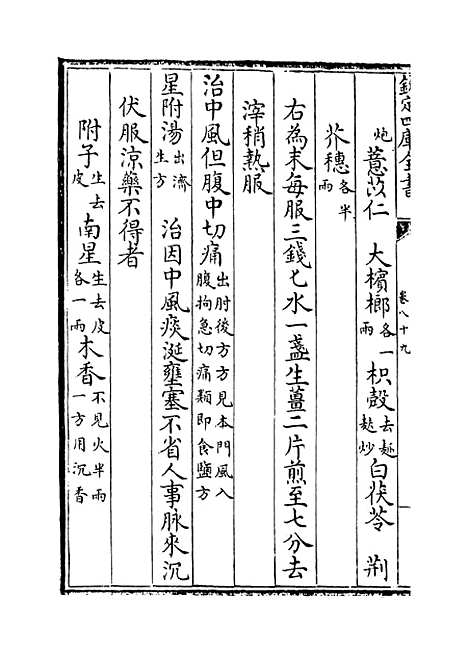 欽定四庫全書
卷八十九
炮薏苡仁　大檳榔各一兩枳殼去瓤麩炒白茯苓　荆
芥穗各半兩
右為末每服三錢匕水一盞生薑二片煎至七分去
滓稍熱服
治中風但腹中切痛出肘後方方見本門風入腹拘急切痛類即食鹽方
星附湯出濟生方　治因中風痰涎壅塞不省人事脈來沉
伏服涼藥不得者
附子生去皮南星生去皮各一兩木香不見火半兩一方用沉香